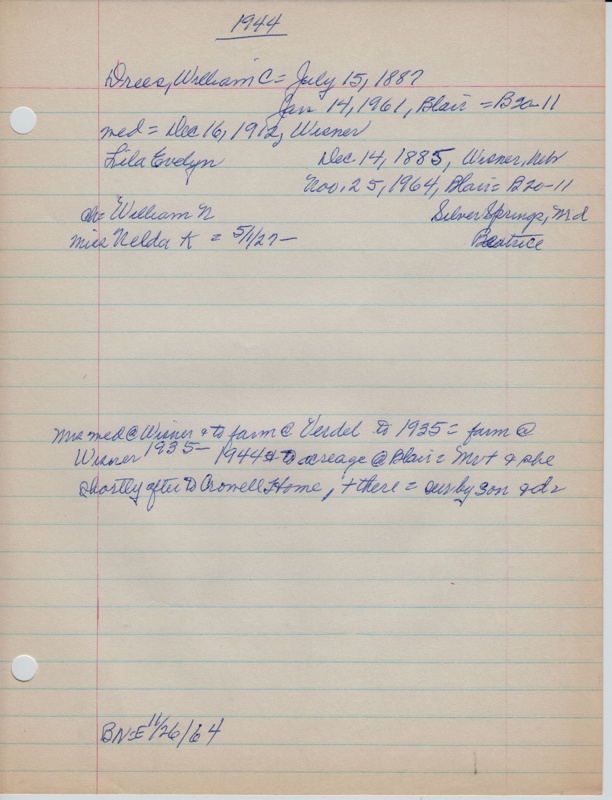 1944
Drees, William C = July 15, 1887
Jan 14, 1961, Blair = B20-11
med = Dec 16, 1912, Wisner
Lila Evelyn Dec. 14, 1885, Wisner, Neb
Nov. 25, 1964, Blair = B20-11
ch = William N Silver Springs, Md
Miss Nelda K = 5/1/27 — Beatrice
Mrs med @ Wisner + to farm @ Verdel to 1935 = farm @
Wisner 1935 — 1944 + to acreage @ Blair = Mr + & she
shortly after to Crowell Home, + there = sur by son & d
BN-E 11/26/64